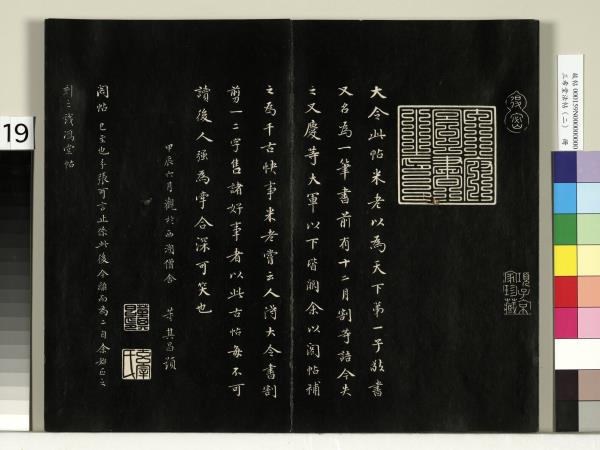 大令此帖米老以為天下第一子敬書
又名為一筆書前有十二月割等語今失
之又慶等大軍以下皆闕余以閣帖補
之為千古快事米老嘗云人得大令書割
剪一二字售諸好事者以此古帖每不可
讀後人強為牽合深可笑也
甲辰六月觀於西湖僧舍 董其昌題
閣帖已至也止張可言止
後合離而為二自余始正之
刻之戲鴻堂帖
項子京
家珍藏
19
故帖 000159N000000000
三希堂法帖(二) 冊